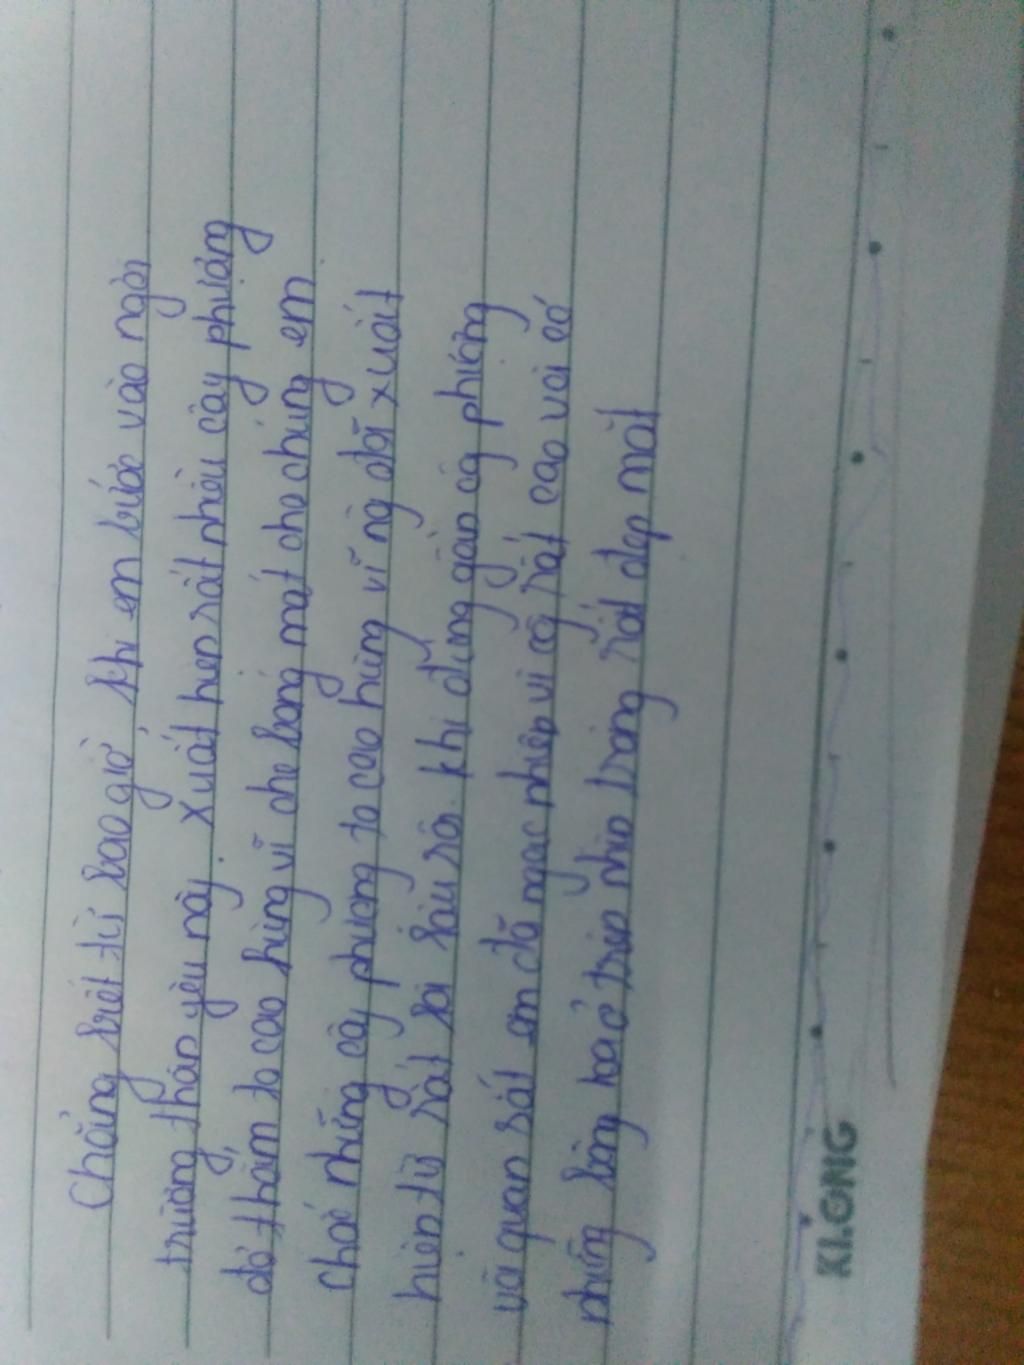 Chẳng biết từ bao giờ khi em bước vào ngôi
trường thân yêu này. Xuất hiện rất nhiều cây phượng
đỏ thắm to cao hùng vĩ che bóng mát cho chúng em
Chắc những cây phượng to cao hùng vĩ nŷ đã xuất
hiện từ rất lâu rồi. khi đứng gần cây phượng
và quan sát em đã ngạc nhiên vì cây rất cao và có
những bông hoa ở trên nhìn trông rất đẹp mắt
KLONG